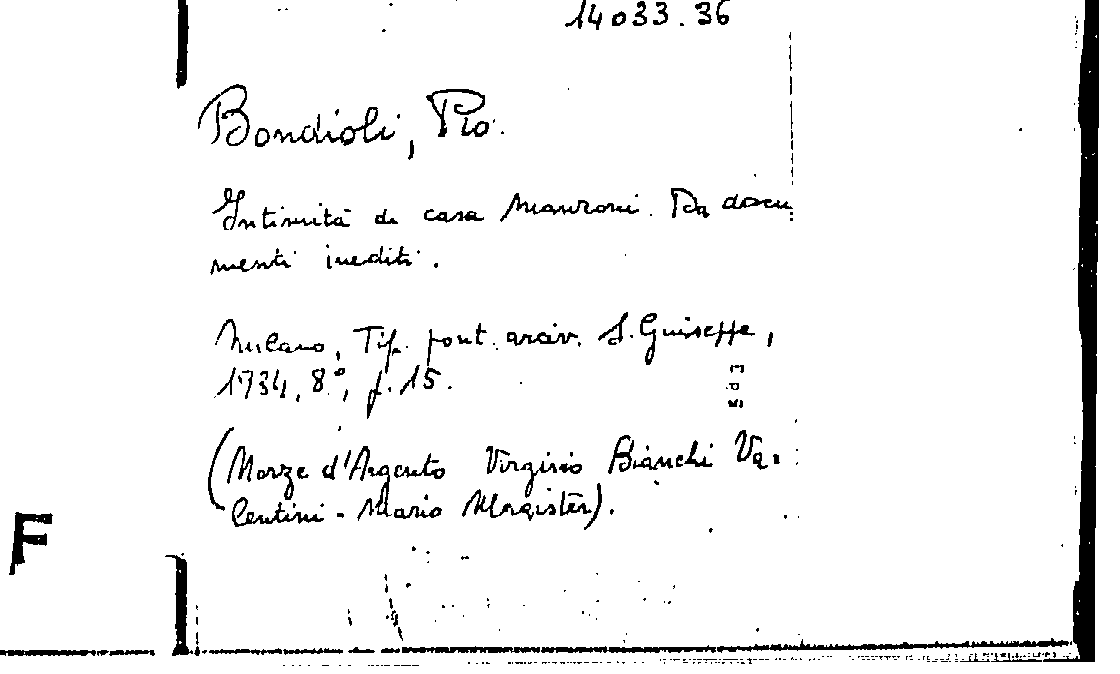 14033.36
Bondioli, Pio.
Intimità di casa Manzoni. Da docu
menti inediti.
Milano, Tip. pont. arciv. S. Giuseppe,
1934, 8°, p. 15.
(Nozze d'Argento Virginio Bianchi Va-
lentini - Maria Magister).
F